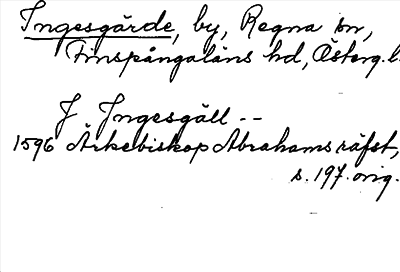 Ingesgärde, by, Regna sn,
Finspångaläns hd, Österg. l.
J Jngesgäll --
1596 Ärkebiskop Abrahams räfst,
s. 197. orig.